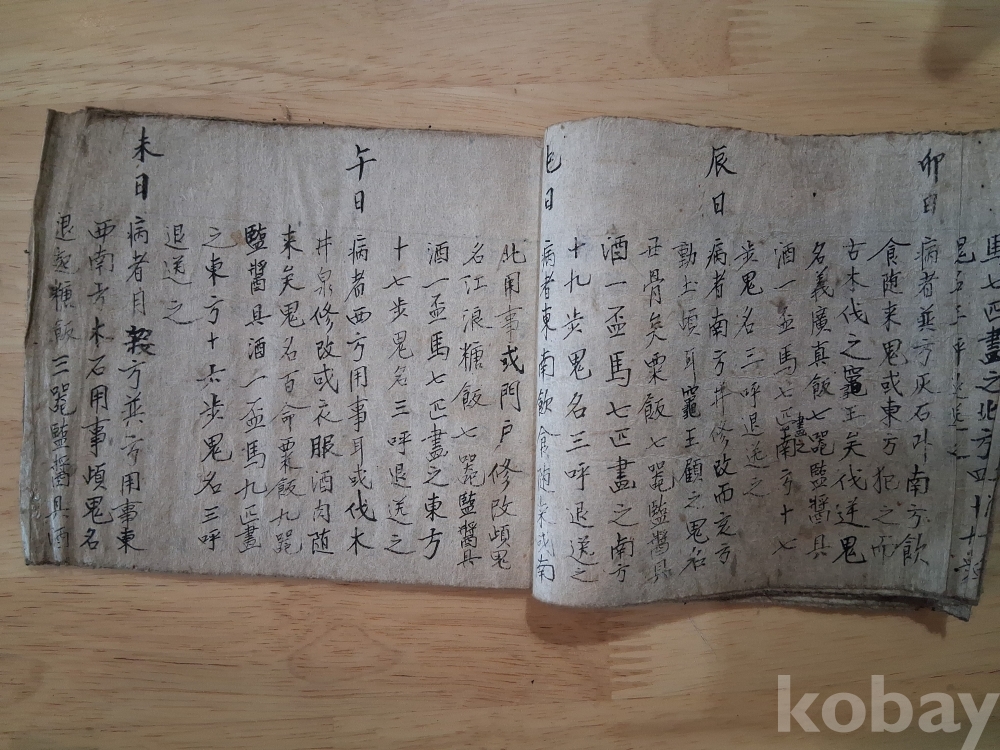 馬七匹畫之北方四十
鬼名三呼退送之
卯日 病者並方灰石叫南方飮
食随来鬼或東方犯之而
古木伐之竈王矣伐送鬼
名義廣真飯七器監醬具
酒一盃馬七匹畫之南方十七
步鬼名三呼退送之
辰日 病者南方井修改而亥方
動土頉耳竈王顧之鬼名
丑骨矣粟飯七器監醬具
酒一盃馬七匹畫之南方
十九步鬼名三呼退送之
巳日 病者東南飮食随来或南
此用事或門戶修改頉鬼
名江浪糖飯七器監醬具
酒一盃馬七匹畫之東方
十七步鬼名三呼退送之
午日 病者西方用事耳或伐木
井泉修改或衣服酒肉随
来矣鬼名百命粟飯九器
監醬具酒一盃馬九匹畫
之東方十六步鬼名三呼
退送之
未日 病者月殺方並方用事東
西南方木石用事頉鬼名
退起糖飯三器監醬具酒
kobay